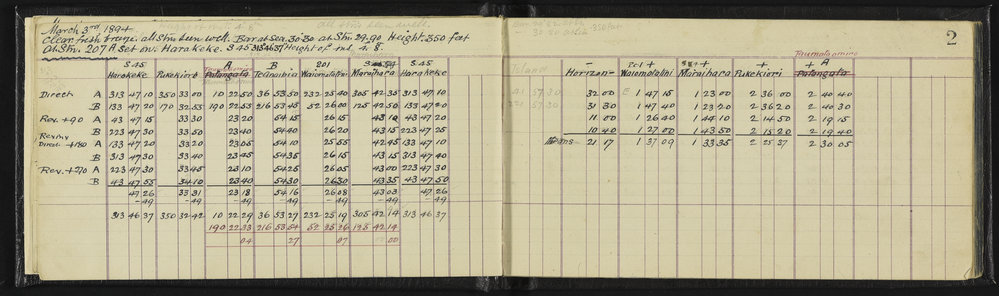 March 3rd 1894
Clear fresh breeze. all Stns been well. Bar at Sea. 30.30 at Stn. 29.90 Height. 350 feet
At Stn. 207 A Set on. Harakeke. 345 313 46 37 Height of ins 4. 8.
2
Taumatamaire
S.45 A B 201 S.45
Harakeke Pukekiori Patangata Teanaini Waiomatatini Maraihara Harakeke
Direct A 313 47 10 350 33 00 10 22 50 36 53 50 232 25 40 305 42 35 313 47 10
B 133 47 20 170 32 53 190 22 53 216 53 45 52 26 00 125 42 50 133 47 20
Rev. +90 A 43 47 15 33 30 23 20 54 15 26 15 43 10 43 47 20
B 223 47 30 33 50 23 40 54 40 26 20 43 15 223 47 25
Direct +180 A 133 47 20 33 20 23 05 54 10 25 55 42 45 133 47 10
B 313 47 30 33 40 23 45 54 35 26 15 43 15 313 47 40
Rev. +270 A 223 47 30 33 45 23 10 54 25 26 05 43 00 223 47 30
B 43 47 55 34 10 23 40 54 30 26 30 43 35 43 47 50
47 26 33 31 23 18 54 16 26 08 43 03 47 26
-49 -49 -49 -49 -49 -49 -49
313 46 37 350 32 42 10 22 29 36 53 27 232 25 19 305 42 14 313 46 37
190 22 33 216 53 54 52 25 26 125 42 14
04 27 07 00
- + + + + A
Horizon Waiomatatini Maraihara Pukekiori Patangata
32 00 E 1 47 15 1 23 00 2 36 00 2 40 40
31 30 1 47 40 1 23 20 2 36 20 2 40 30
11 00 1 26 40 1 44 10 2 14 50 2 19 15
10 40 1 27 00 1 43 50 2 15 20 2 19 40
Means 21 17 1 37 09 1 33 35 2 25 37 2 30 05